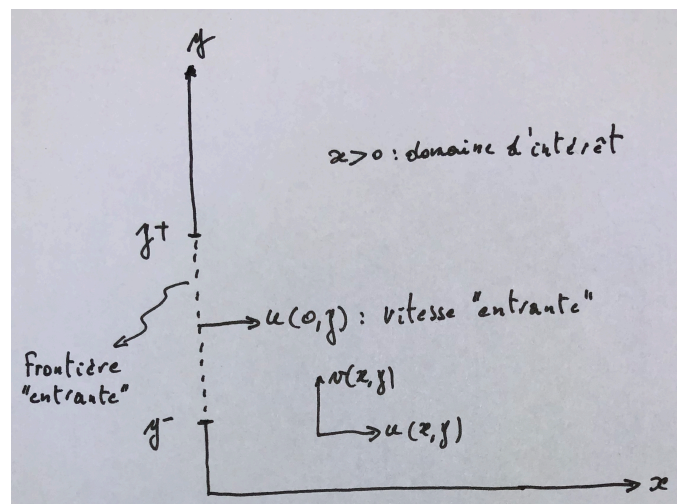 y
x>0 : domaine d'intérêt
y+
u(0,y) : vitesse "entrante"
Frontière
"entrante"
v(x,y)
u(x,y)
y-
x